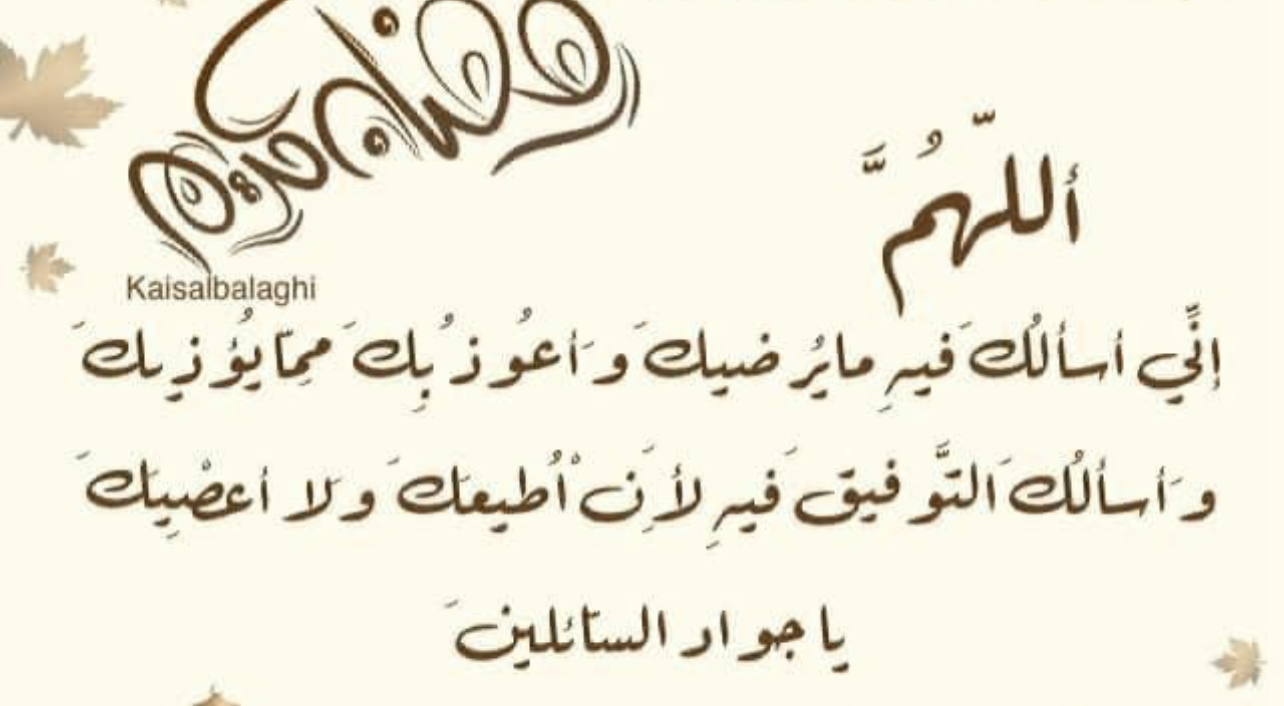 رمضان كريم
Kaisalbalaghi
أللّهُمَّ
إنِّي أسألُكَ فيهِ مايُرضيكَ وَأعُوذُ بِكَ مِمّا يُؤذيكَ
وَأسألُكَ التَّوفيقَ فيهِ لأَِنْ اُطيعَكَ وَلا أعصْيِكَ
يا جواد السّائلينَ